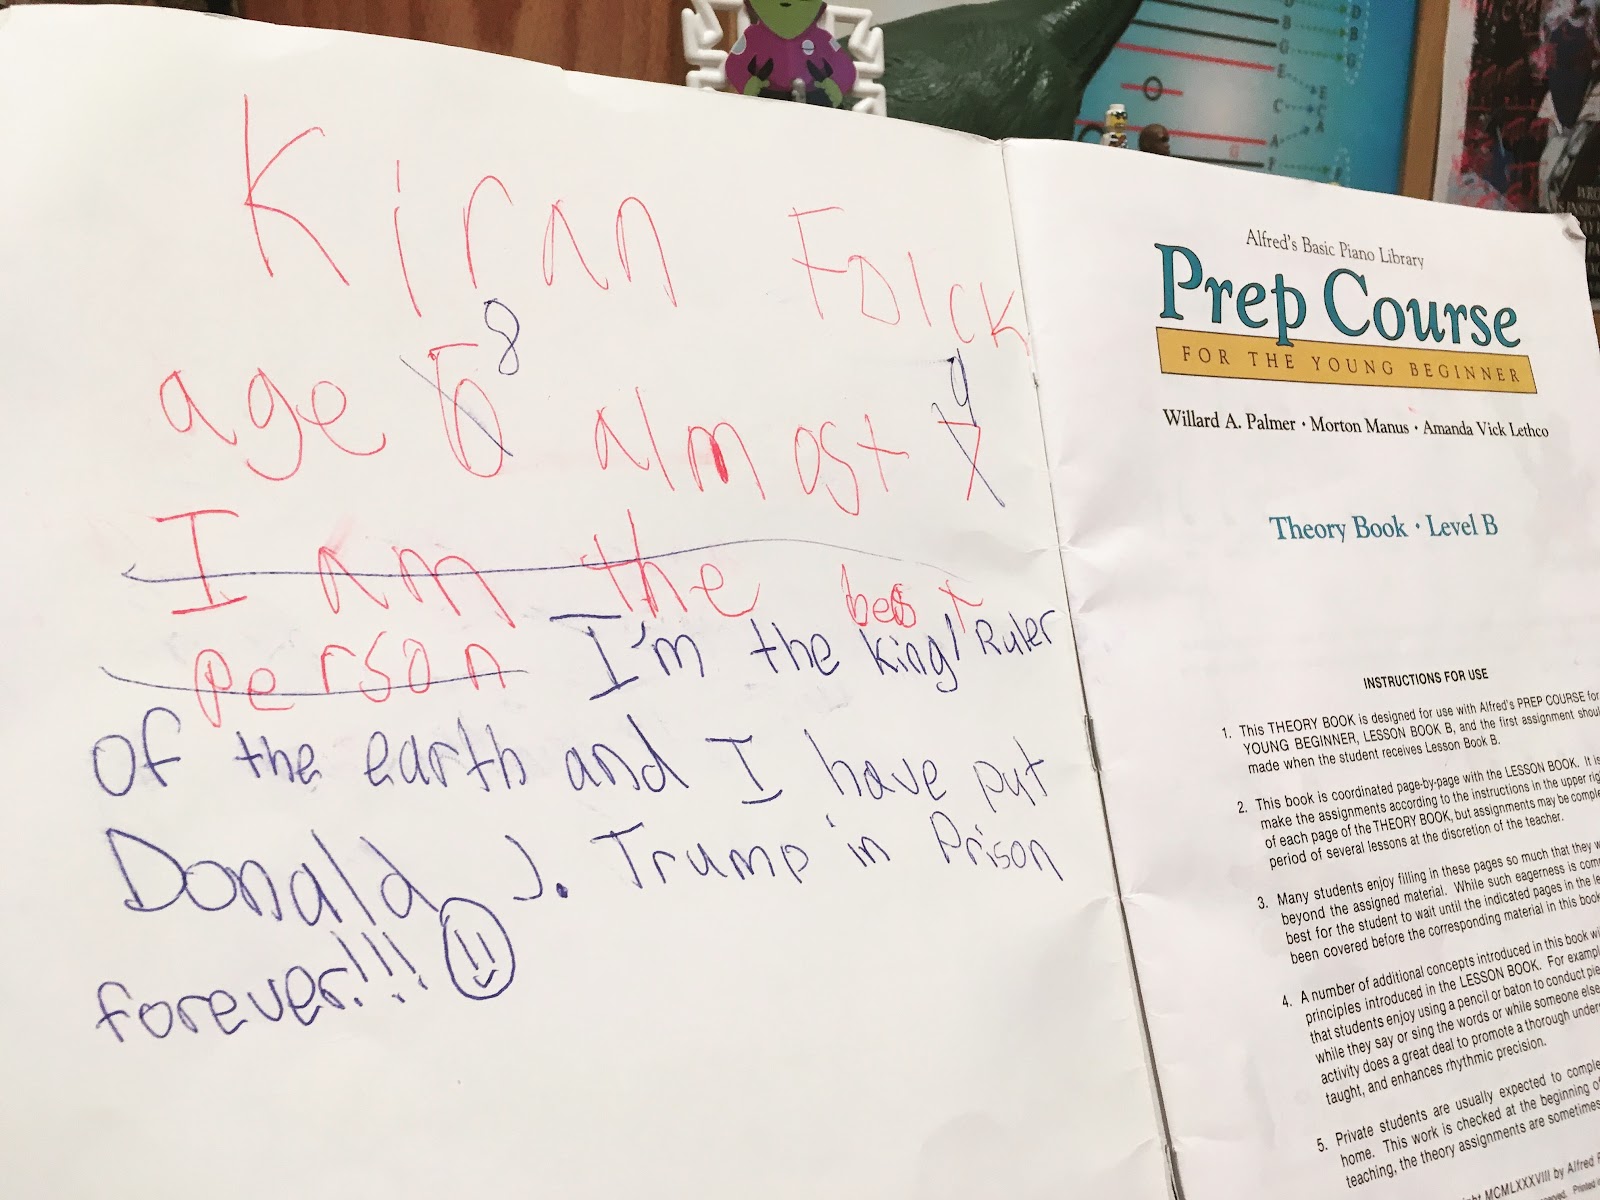 Kiran Folck
age 6 8 almost 7 9
I am the best
person I'm the king/Ruler
of the earth and I have put
Donald J. Trump in Prison
forever!!!
Alfred's Basic Piano Library
Prep Course
FOR THE YOUNG BEGINNER
Willard A. Palmer • Morton Manus • Amanda Vick Lethco
Theory Book • Level B
INSTRUCTIONS FOR USE
1. This THEORY BOOK is designed for use with Alfred's PREP COURSE for
YOUNG BEGINNER, LESSON BOOK B, and the first assignment shou
made when the student receives Lesson Book B.
2. This book is coordinated page-by-page with the LESSON BOOK. It is
make the assignments according to the instructions in the upper rig
of each page of the THEORY BOOK, but assignments may be comple
period of several lessons at the discretion of the teacher.
3. Many students enjoy filling in these pages so much that they w
beyond the assigned material. While such eagerness is com
best for the student to wait until the indicated pages in the le
been covered before the corresponding material in this book
4. A number of additional concepts introduced in this book wi
principles introduced in the LESSON BOOK. For exampl
that students enjoy using a pencil or baton to conduct pie
while they say or sing the words or while someone else
activity does a great deal to promote a thorough unders
taught, and enhances rhythmic precision.
5. Private students are usually expected to comple
home. This work is checked at the beginning o
teaching, the theory assignments are sometimes
MCMLXXXVIII by Alfred
D
B
G
E
C
A
F
D
B
G
E
C
A
G